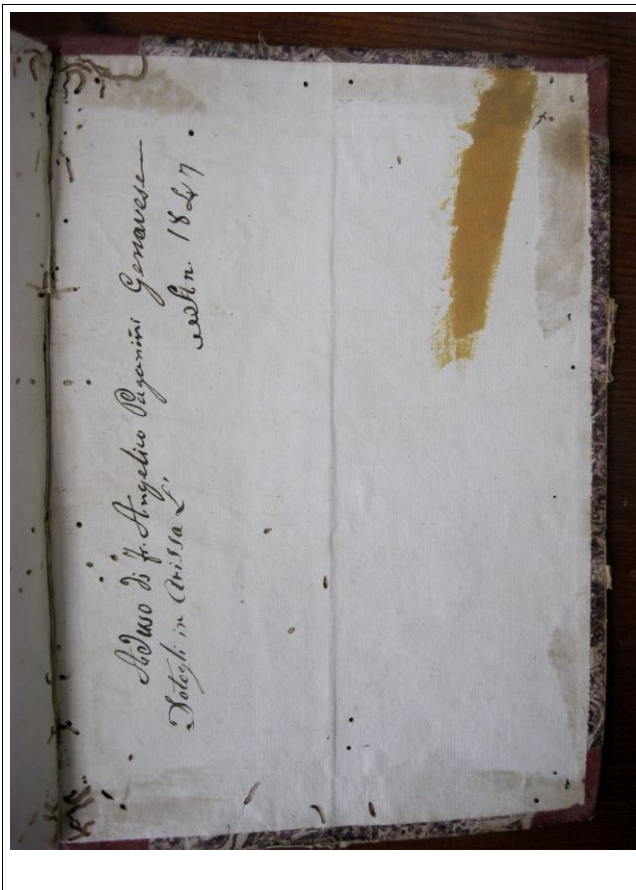 Ad uso di fr. Angelico Paganini Genovese
Datogli in Arissa L'
ann. 1847